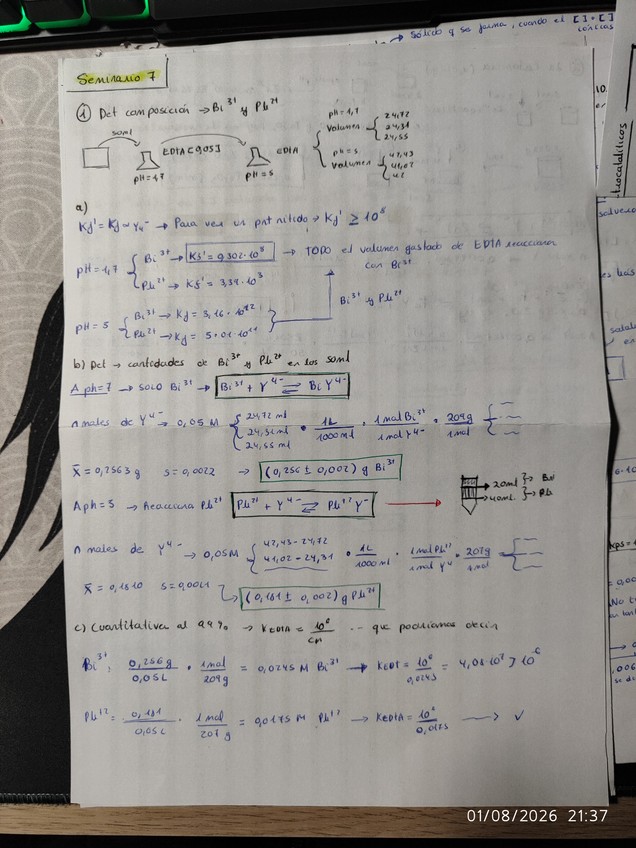 → Sólido q se forma, cuando el [ ] · [ ]
iónicas
Seminario 7
① Det composición → Bi³⁺ y Pb²⁺
50ml
EDTA
pH = 1,7
EDTA
pH = 5
pH = 1,7
Volumen { 24,72
24,31
24,55
pH = 5
Volumen { 42,43
41,02
42
a)
Kf' = Kf · αY⁴⁻ → Para ver un pnt nítido → Kf' ≥ 10⁸
pH = 1,7 { Bi³⁺ → Kf' = 9,302·10⁸ → TODO el volumen gastado de EDTA reacciona
con Bi³⁺
Pb²⁺ → Kf' = 3,39·10³
pH = 5 { Bi³⁺ → Kf = 3,16·10²²
Pb²⁺ → Kf = 5,01·10¹¹
Bi³⁺ y Pb²⁺
b) Det → cantidades de Bi³⁺ y Pb²⁺ en los 50ml
A ph=7 → SOLO Bi³⁺ → Bi³⁺ + Y⁴⁻ ⇌ Bi Y⁴⁻
n moles de Y⁴⁻ → 0,05 M { 24,72 ml
24,31 ml
24,55 ml
· 1L/1000ml · 1mol Bi³⁺/1mol Y⁴⁻ · 209g/1mol {
x̄ = 0,2563 g s = 0,0022 → (0,256 ± 0,002) g Bi³⁺
A ph = 5 → Reacciona Pb²⁺ Pb²⁺ + Y⁴⁻ ⇌ Pb²⁺ Y⁴⁻
→ 20ml } → Bi
→ 40ml } → Pb
n moles de Y⁴⁻ → 0,05M { 42,43 - 24,72
41,02 - 24,31
· 1L/1000ml · 1mol Pb²⁺/1mol Y⁴ · 207g/1mol {
x̄ = 0,1810 s = 0,0021 → (0,181 ± 0,002) g Pb²⁺
c) Cuantitativa al 99% → KEDTA = 10⁶/cM ... que podríamos decir
Bi³⁺: 0,256g/0,05L · 1mol/209g = 0,0245 M Bi³⁺ → KEDT = 10⁶/0,0245 = 4,08·10⁷
Pb²⁺ = 0,181/0,05L · 1mol/207g = 0,0175 M Pb²⁺ → KEDTA = 10⁶/0,0175 → ✓
01/08/2026 21:37